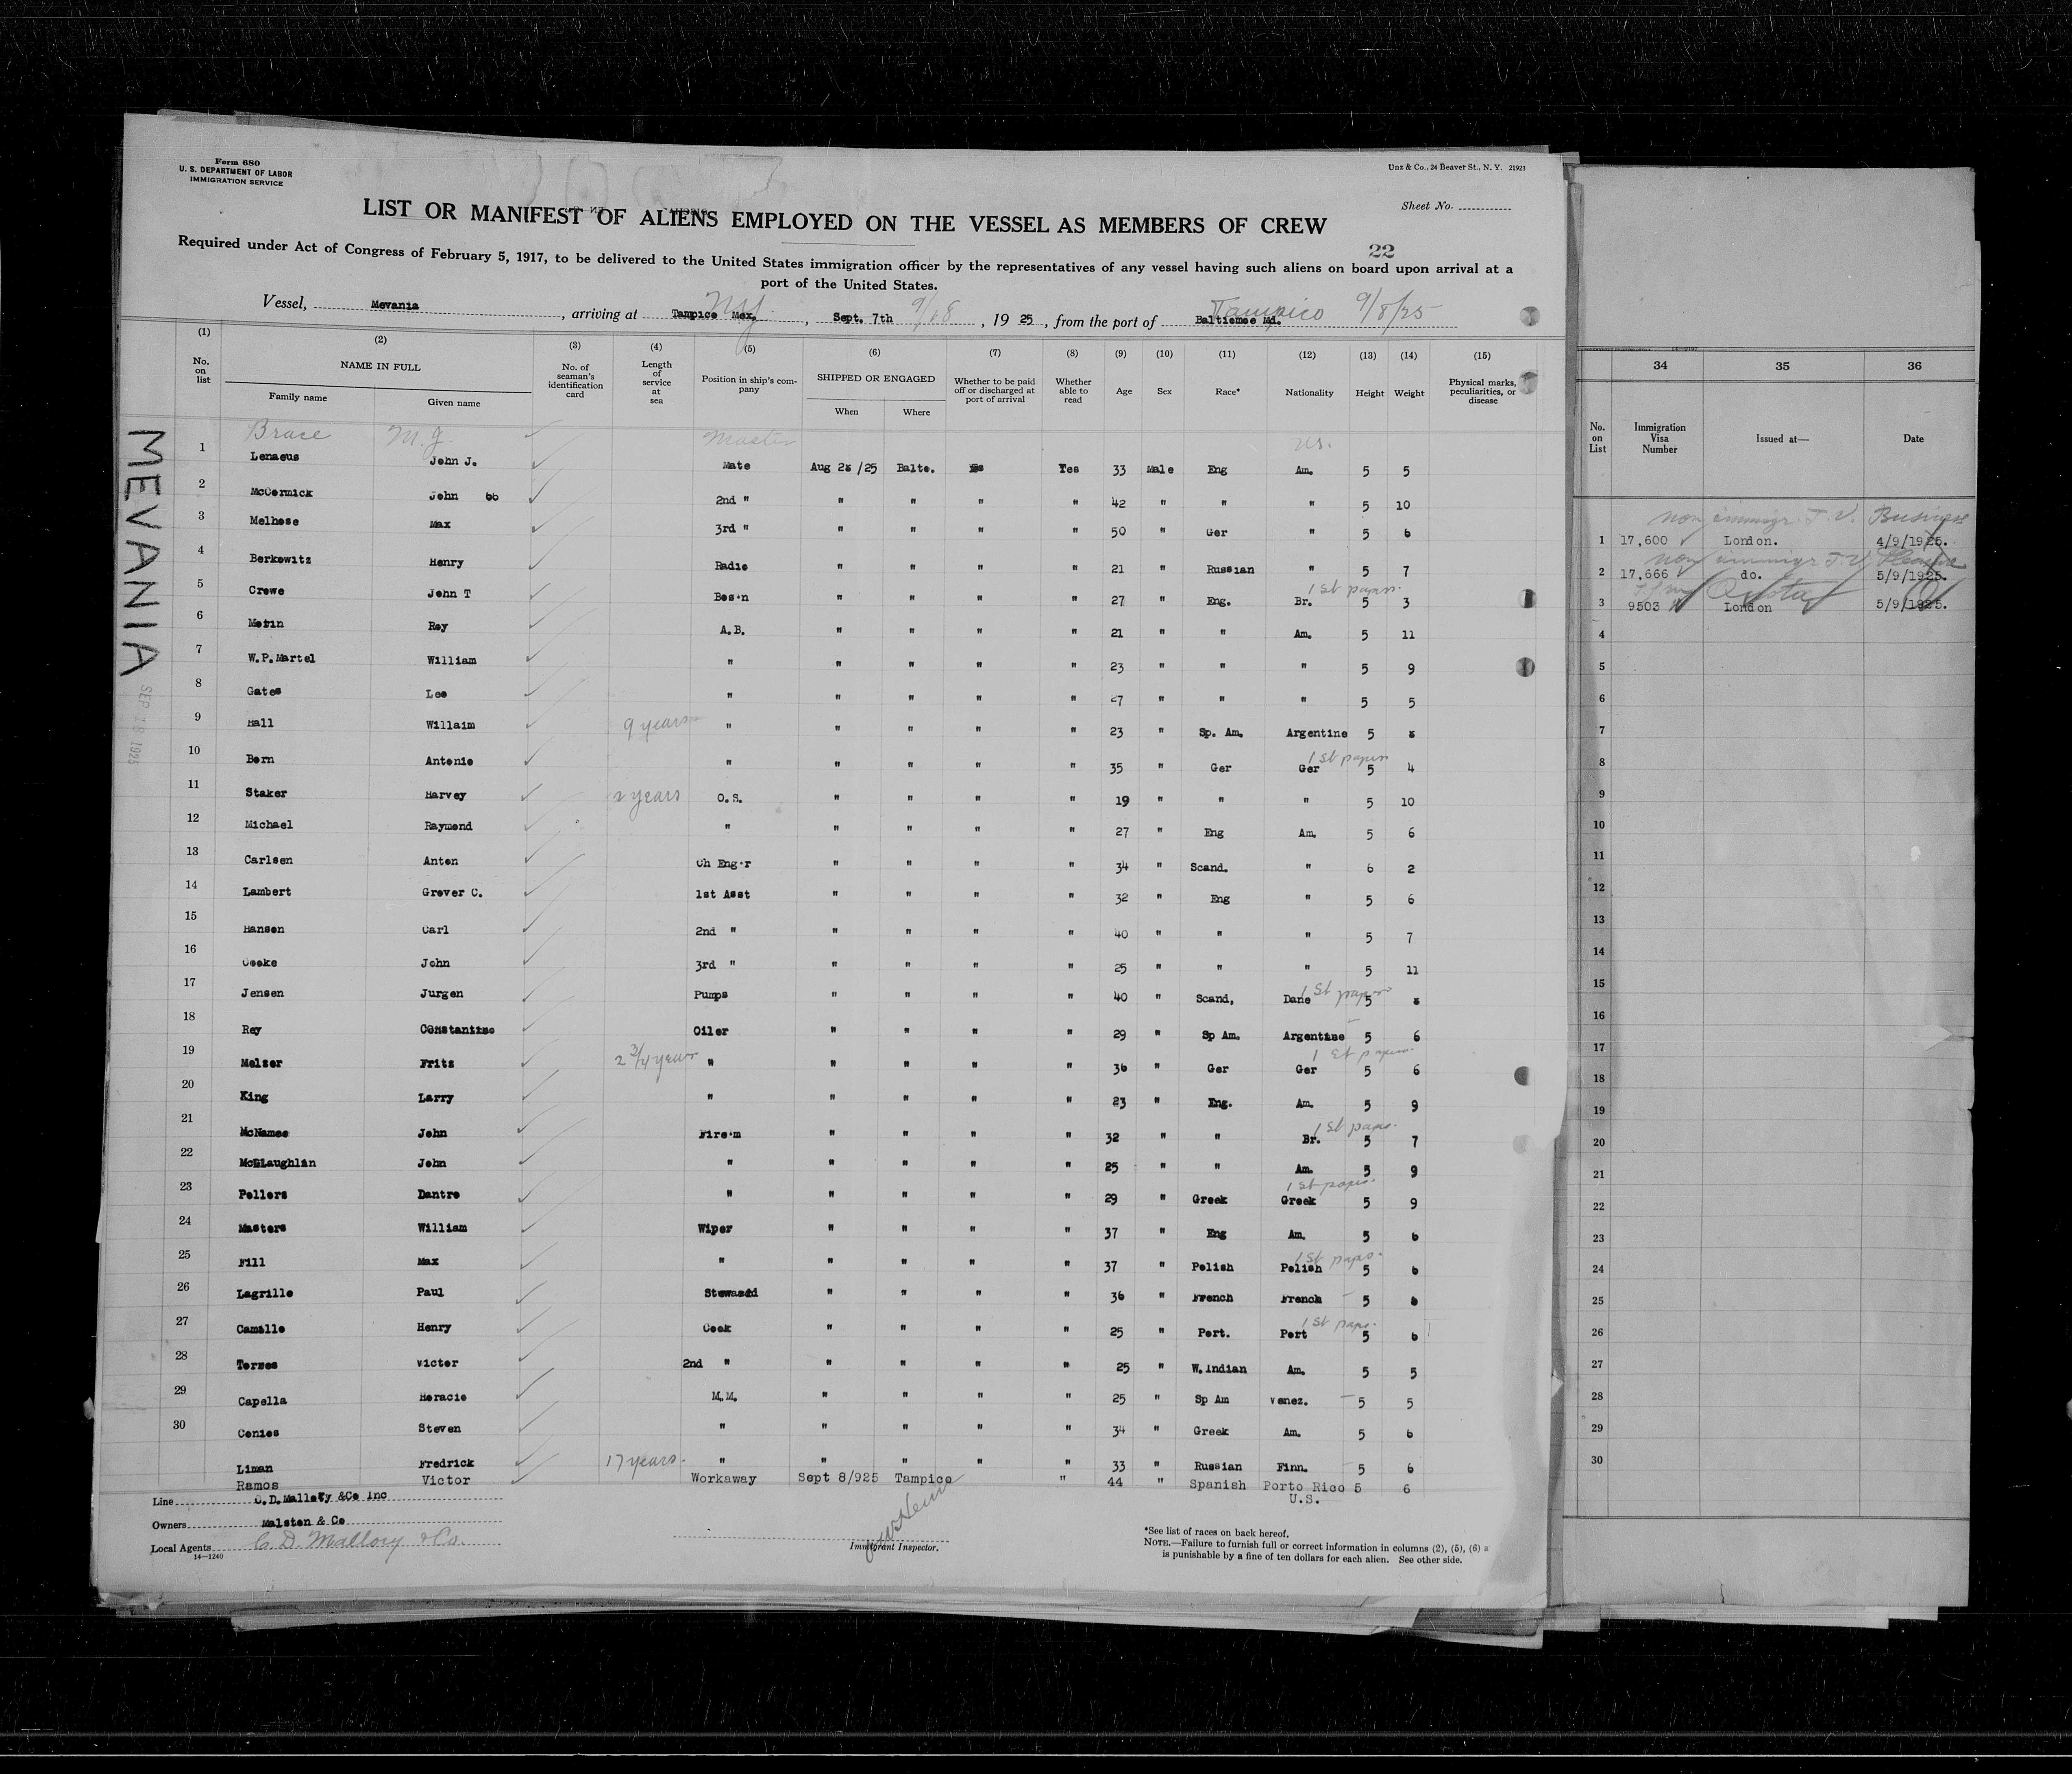 Form 680
U. S. DEPARTMENT OF LABOR
IMMIGRATION SERVICE
Unz & Co., 24 Beaver St., N. Y. 21923
Sheet No.
LIST OR MANIFEST OF ALIENS EMPLOYED ON THE VESSEL AS MEMBERS OF CREW
22
Required under Act of Congress of February 5, 1917, to be delivered to the United States immigration officer by the representatives of any vessel having such aliens on board upon arrival at a
port of the United States.
NY 9/18 Tampico 9/8/25
Vessel, Mevania , arriving at Tampico Mex. , Sept. 7th , 19 25 , from the port of Baltiemee Md.
(1) (2) (3) (4) (5) (6) (7) (8) (9) (10) (11) (12) (13) (14) (15)
No. on list NAME IN FULL Family name Given name No. of seaman's identification card Length of service at sea Position in ship's company SHIPPED OR ENGAGED When Where Whether to be paid off or discharged at port of arrival Whether able to read Age Sex Race* Nationality Height Weight Physical marks, peculiarities, or disease
Brace M. J. Master U.S.
1 Lenaeus John J. Mate Aug 28 /25 Balto. Yes Yes 33 Male Eng Am. 5 5
2 McCormick John 66 2nd " " " " " 42 " " " 5 10
3 Melhese Max 3rd " " " " " 50 " Ger " 5 6
4 Berkowitz Henry Radio " " " " 21 " Russian " 5 7
5 Crowe John T Bos'n " " " " 27 " Eng. Br. 1st papers. 5 3
6 Roy A.B. " " " " 21 " " Am. 5 11
7 W.P.Martel William " " " " " 23 " " " 5 9
8 Gates Lee " " " " " 27 " " " 5 5
9 Hall Willaim 9 years " " " " " 23 " Sp. Am. Argentine 5
10 Born Antonio " " " " " 35 " Ger Ger 1st papers 5 4
11 Staker Harvey 2 years O.S. " " " " 19 " " " 5 10
12 Michael Raymond " " " " " 27 " Eng Am. 5 6
13 Carlsen Anton Ch Eng'r " " " " 34 " Scand. " 6 2
14 Lambert Grover C. 1st Asst " " " " 32 " Eng " 5 6
15 Hansen Carl 2nd " " " " " 40 " " " 5 7
16 Cooke John 3rd " " " " " 25 " " " 5 11
17 Jensen Jurgen Pumps " " " " 40 " Scand, Dane 1st papers 5
18 Rey Constantine Oiler " " " " 29 " Sp Am. Argentine 5 6
19 Melzer Fritz 2 3/4 years " " " " " 36 " Ger Ger 1st papers. 5 6
20 King Larry " " " " " 23 " Eng. Am. 5 9
21 McNamee John Fire'm " " " " 32 " " Br. 1st paps. 5 7
22 McLaughlin John " " " " " 25 " " Am. 5 9
23 Pollers Dantre " " " " " 29 " Greek Greek 1st paps. 5 9
24 Masters William Wiper " " " " 37 " Eng Am. 5 6
25 Fill Max " " " " " 37 " Polish Polish 1st paps. 5 6
26 Lagrille Paul Steward " " " " 36 " French French 5 6
27 Camille Henry Cook " " " " 25 " Port. Port 1st paps. 5 6
28 Torres Victor 2nd " " " " " 25 " W.Indian Am. 5 5
29 Capella Horacio M.M. " " " " 25 " Sp Am Venez. 5 5
30 Conies Steven " " " " " 34 " Greek Am. 5 6
Liman Fredrick 17 years. " " " " " 33 " Russian Finn. 5 6
Ramos Victor Workaway Sept 8/925 Tampico " 44 " Spanish Porto Rico 5 6
U.S.
Line C.D.Mallory &Co Inc
Owners Malston & Co
Local Agents C. D. Mallory & Co.
14—1240
Immigrant Inspector.
*See list of races on back hereof.
NOTE.—Failure to furnish full or correct information in columns (2), (5), (6) a
is punishable by a fine of ten dollars for each alien. See other side.
MEVANIA
SEP 18 1925
34 35 36
No. on List Immigration Visa Number Issued at— Date
non immigr T. V. Business
1 17,600 London. 4/9/1925.
non immigr T.V. Pleasure
2 17,666 do. 5/9/1925.
Quota
3 9503 London 5/9/1925.
4
5
6
7
8
9
10
11
12
13
14
15
16
17
18
19
20
21
22
23
24
25
26
27
28
29
30